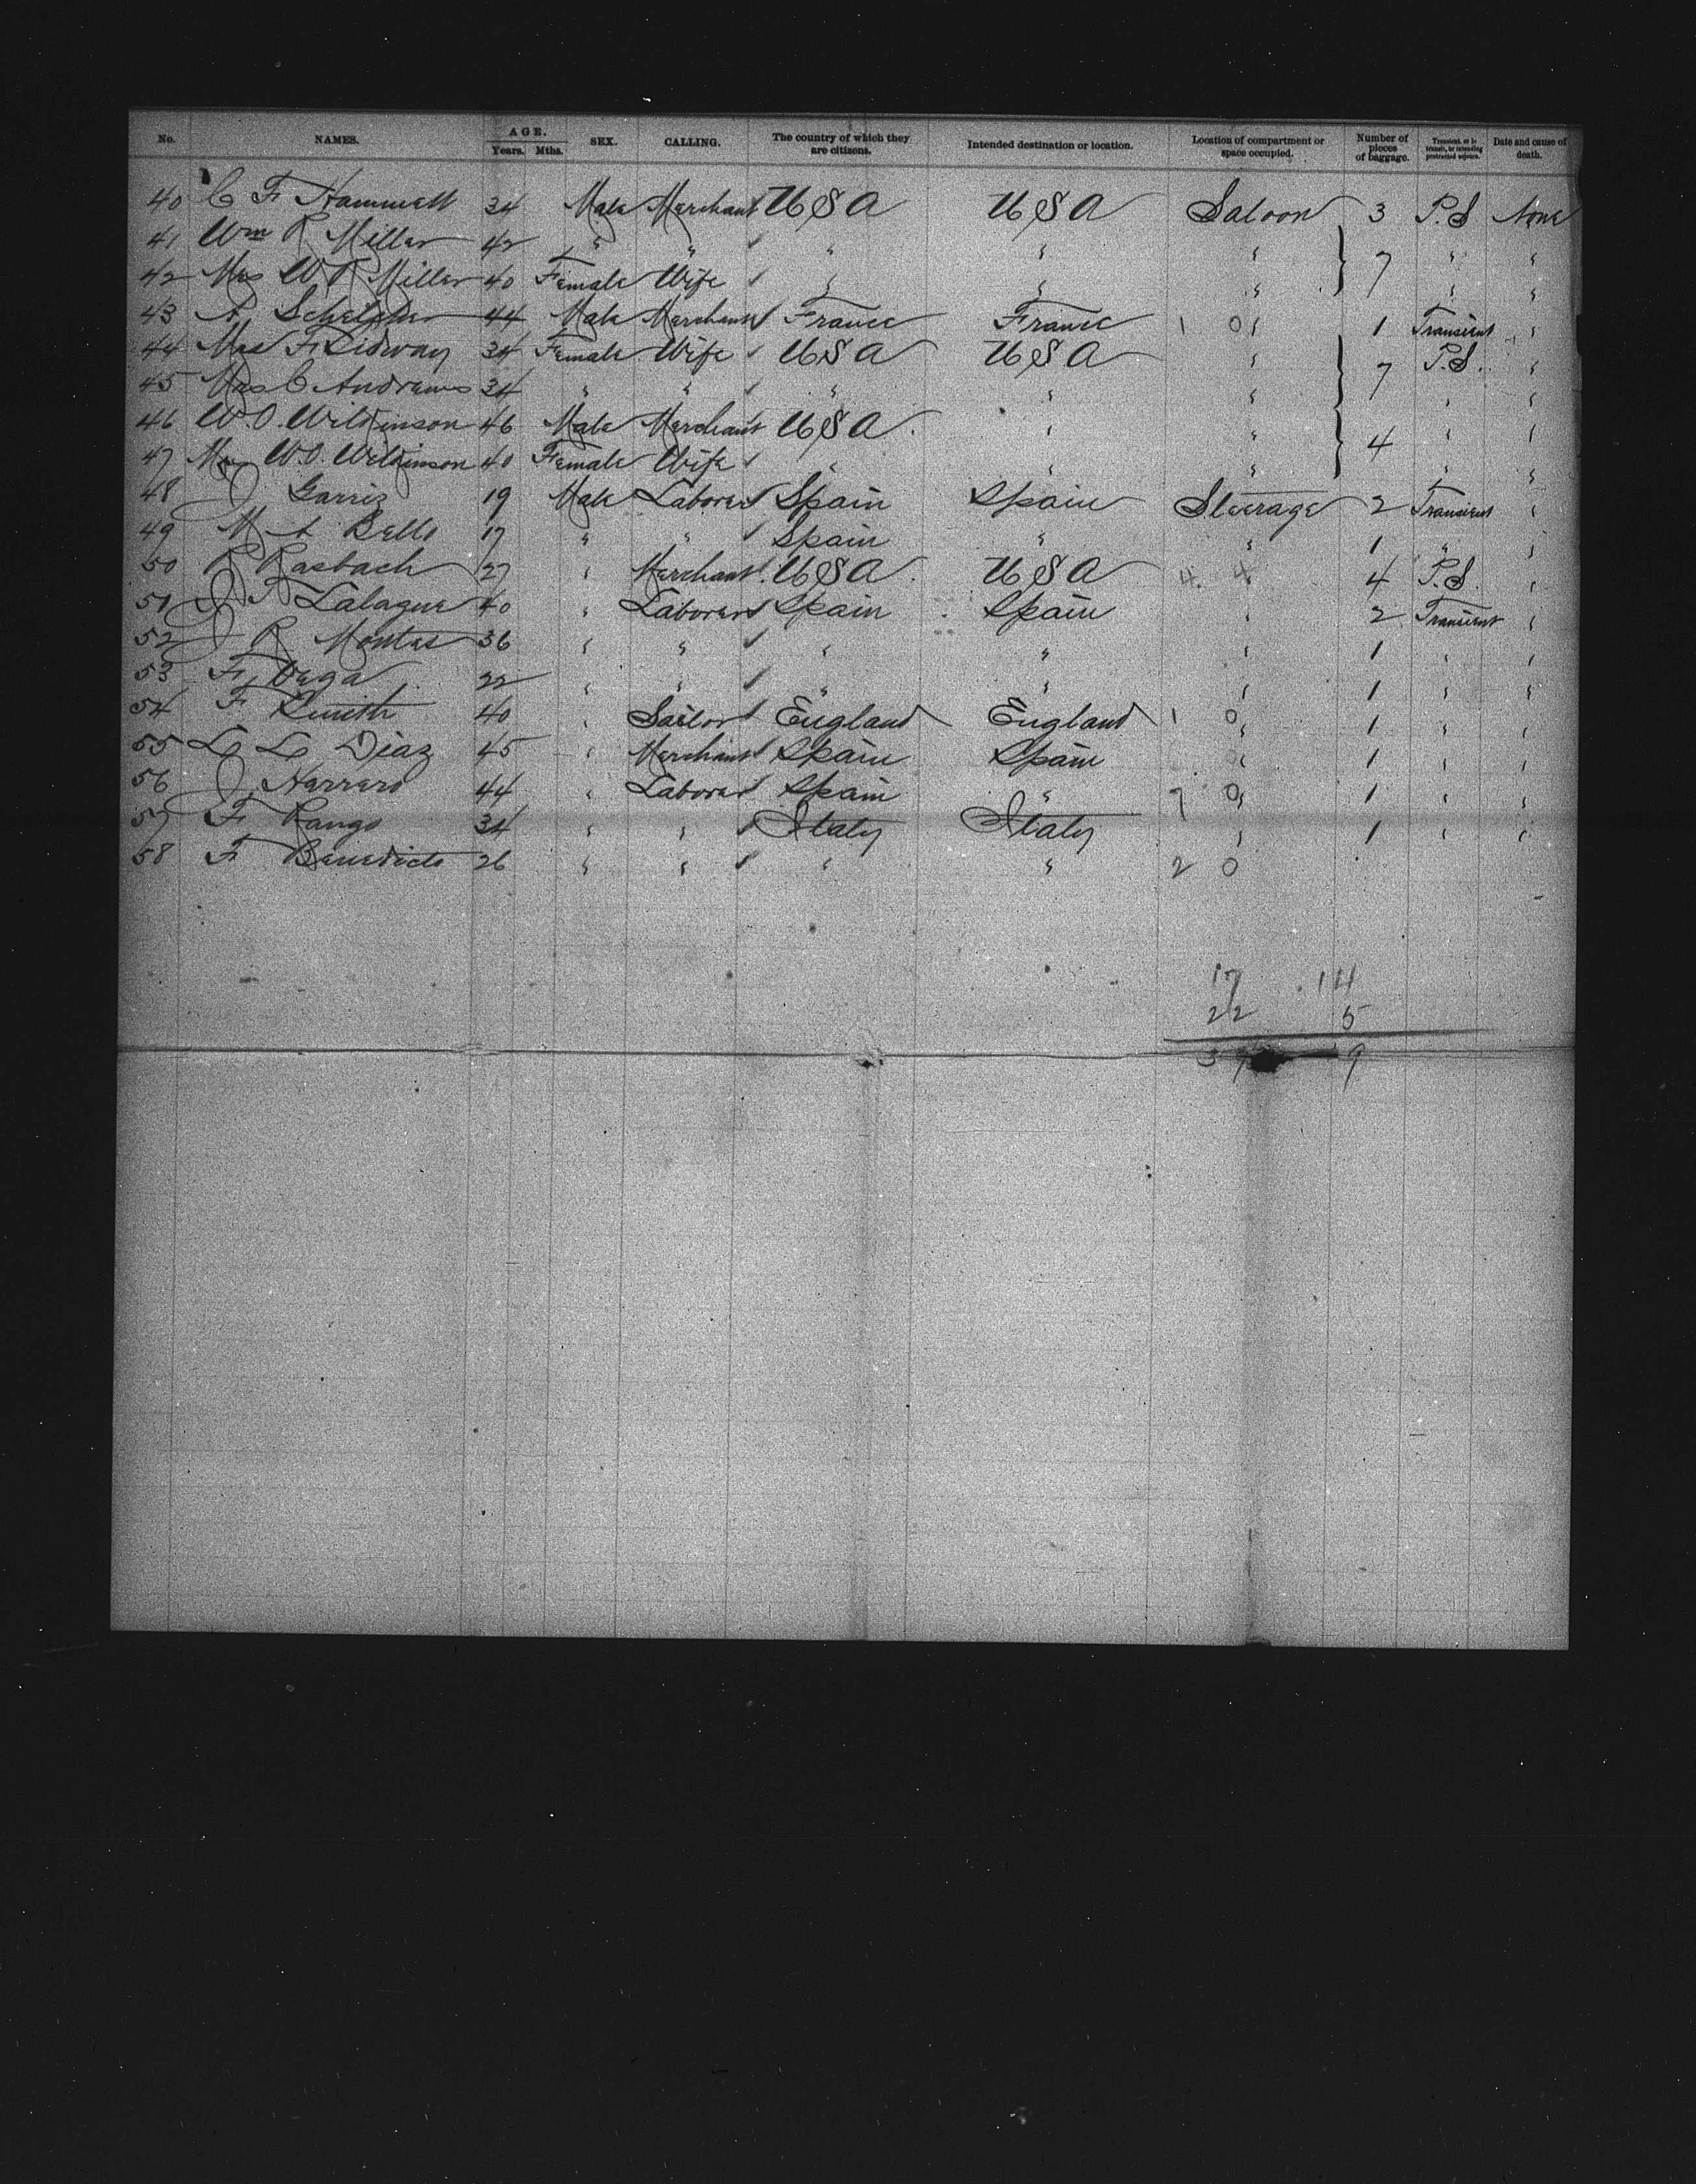 No. NAMES. AGE. Years. Mths. SEX. CALLING. The country of which they are citizens. Intended destination or location. Location of compartment or space occupied. Number of pieces of baggage. Transient, or in transit, or intending protracted sojourn. Date and cause of death.
40 C F Hammett 34 Male Merchant U S A U S A Saloon 3 P.S None
41 Wm R Miller 42 " " " " " } 7 " "
42 Mrs W R Miller 40 Female Wife " " " " "
43 A 44 Male Merchant France France 1 0 " 1 Transient "
44 Mrs F Ridway 34 Female Wife U S A U S A " } 7 P.S. "
45 Mrs C Andrews 34 " " " " " " "
46 W.O. Wilkinson 46 Male Merchant U S A " " } 4 " "
47 Mrs W.O. Wilkinson 40 Female Wife " " " " "
48 J Garriz 19 Male Laborer Spain Spain Steerage 2 Transient "
49 M A Bello 17 " " Spain " " 1 " "
50 R Rasbach 27 " Merchant U S A U S A 4 4 4 P.S. "
51 J Lalague 40 " Laborer Spain Spain " 2 Transient "
52 J R Montes 36 " " " " " 1 " "
53 F Vega 22 " " " " " 1 " "
54 F 40 " Sailor England England 1 0 " 1 " "
55 Diaz 45 " Merchant Spain Spain " 1 " "
56 J Harrero 44 " Laborer Spain " 7 0 " 1 " "
57 F Rango 34 " " Italy Italy " 1 " "
58 F Benedicto 26 " " " " 2 0
17 14
22 5
39 9